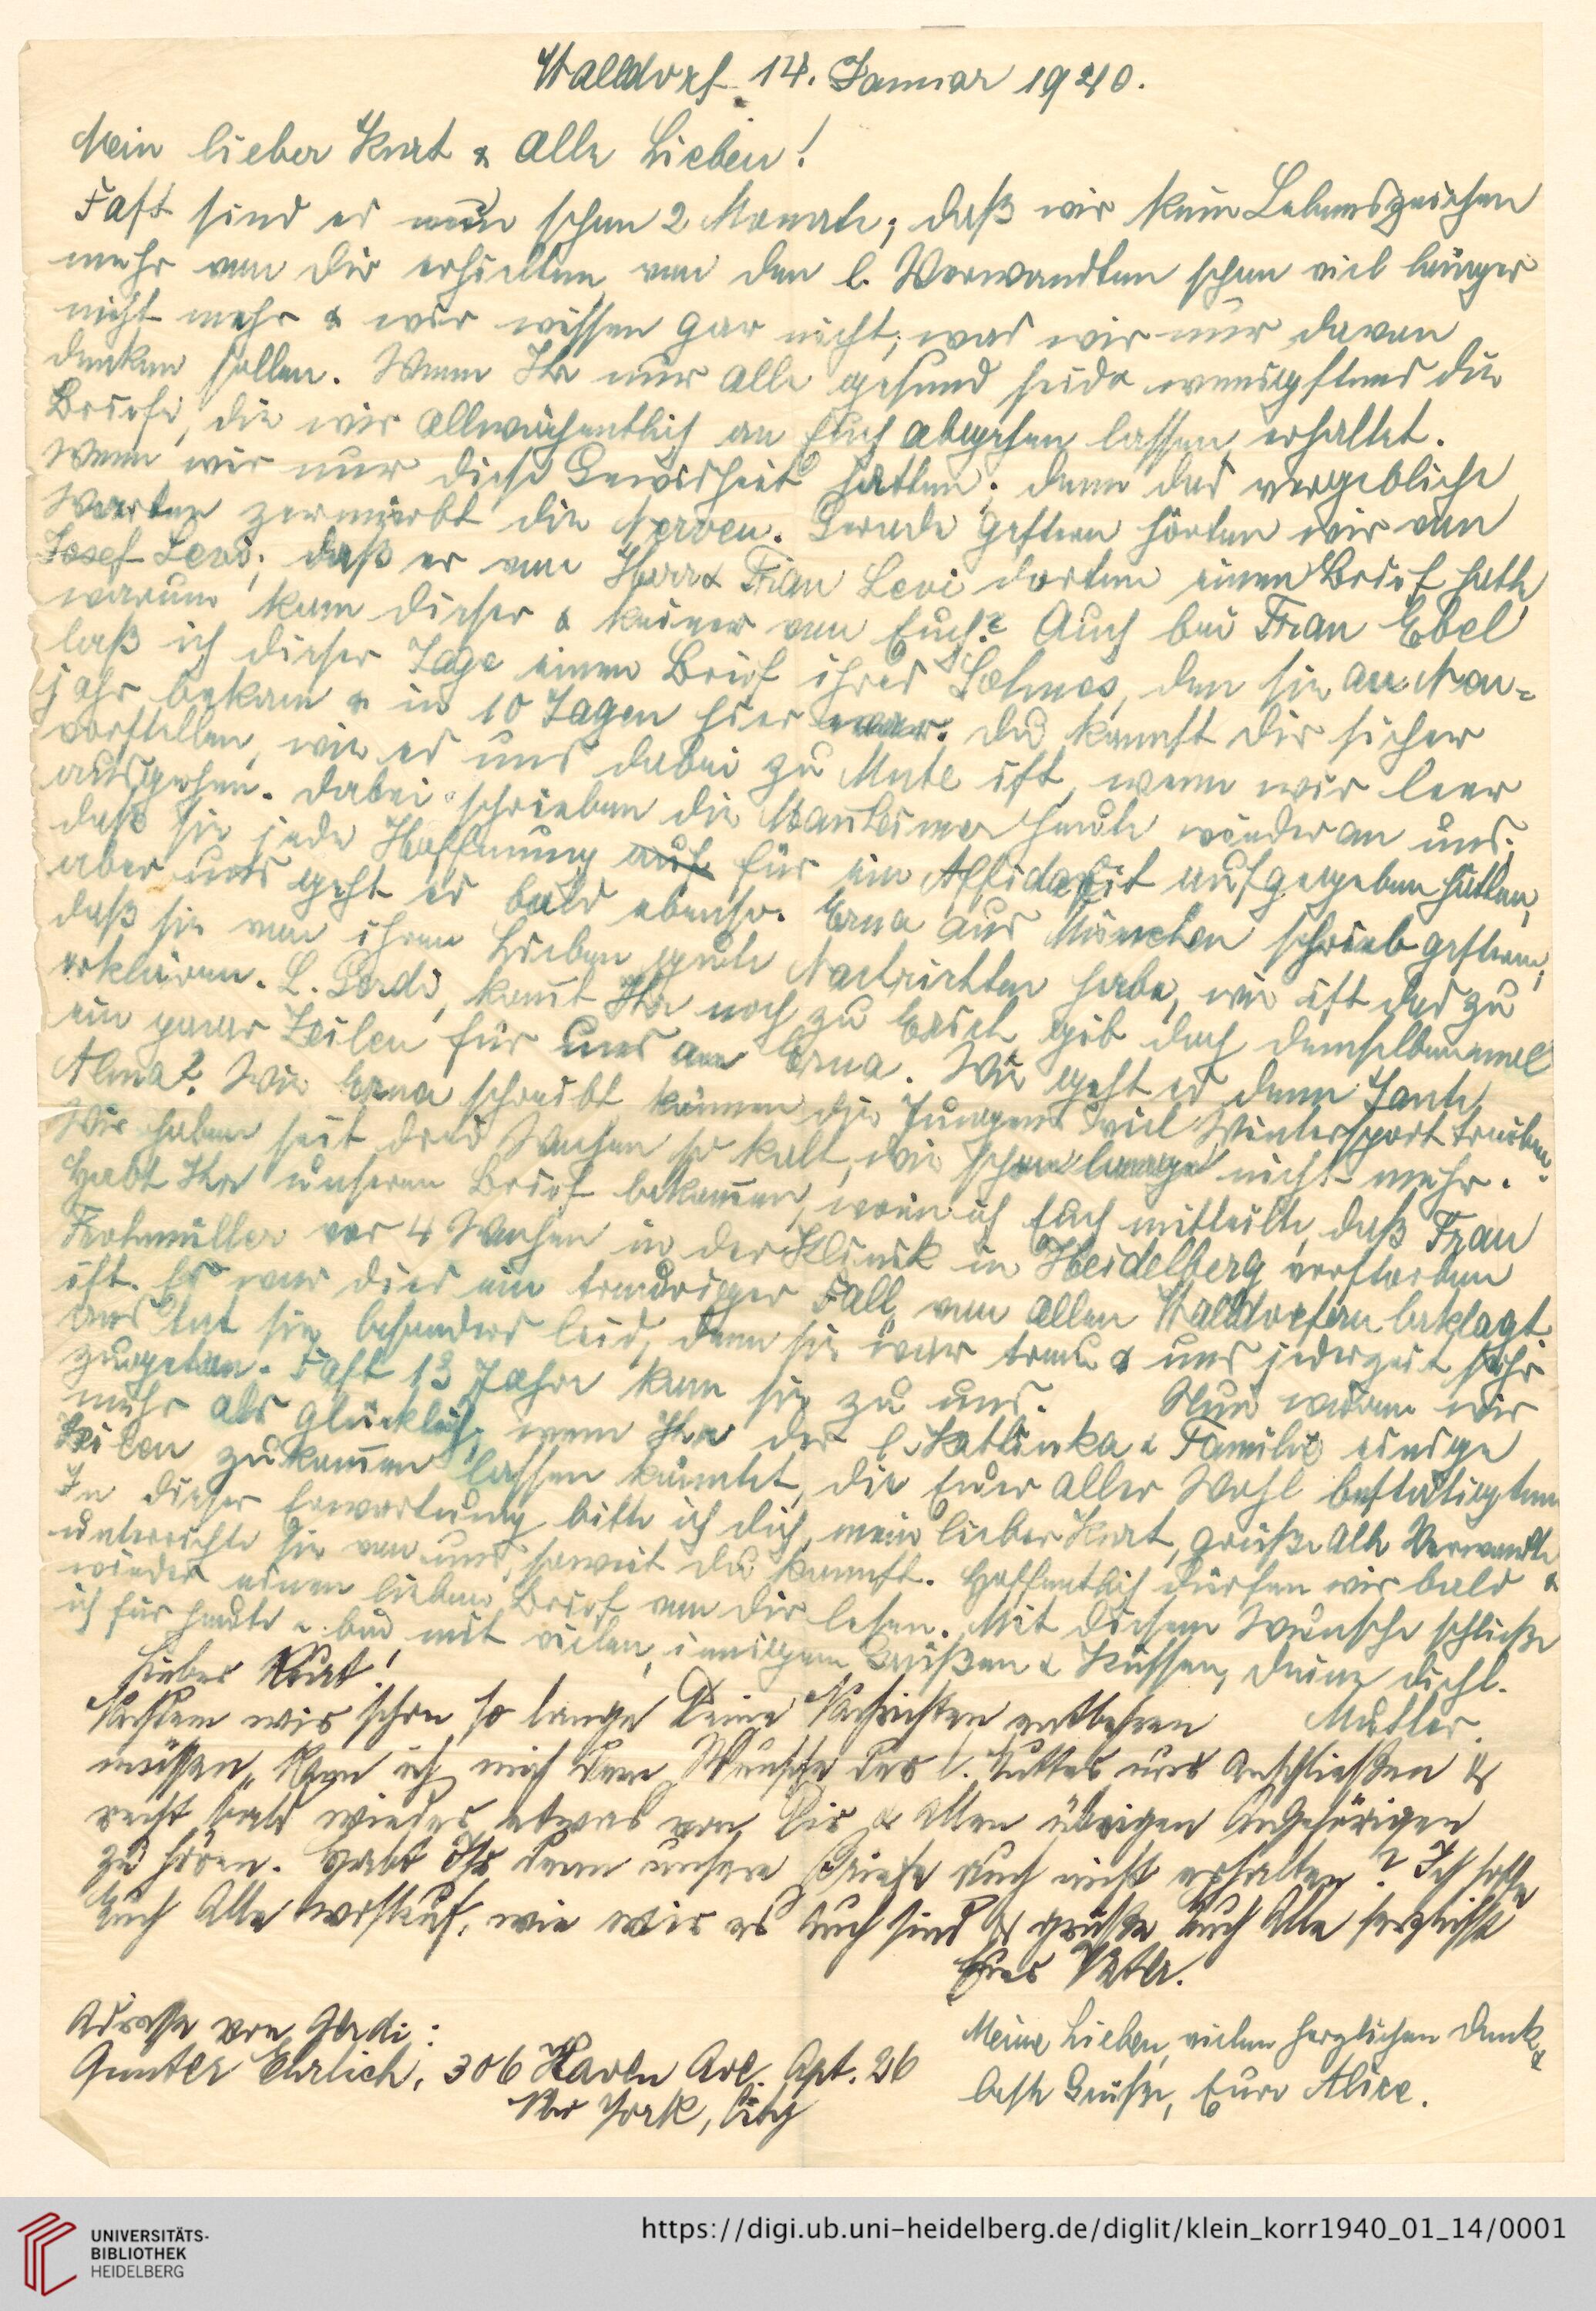 Walldorf 14. Januar 1940.
Mein lieber Kurt & alle Lieben!
Fast sind es nun schon 2 Monate, daß wir kein Lebenszeichen
mehr von dir erhielten, von den l. Verwandten schon viel länger
nicht mehr & wir wissen gar nicht, was wir nur davon
denken sollen. Wenn Ihr nur alle gesund seid & wenigstens die
Briefe, die wir allwöchentlich an Euch abgehen lassen, erhaltet.
Wenn wir nur diese Gewisheit hätten; denn das vergebliche
Warten zermürbt die Nerven. Gerade gestern hörten wir von
Josef Levi, daß er von Herr & Frau Levi dorten einen Brief hatte,
warum kam dieser & keiner von Euch? Auch bei Frau Ebel
laß ich dieser Tage einen Brief ihres Sohnes, den sie an Neu-
jahr bekam & in 10 Tagen hier war. Du kannst dir sicher
vorstellen, wie es uns dabei zu Mute ist, wenn wir leer
ausgehen. Dabei schrieben die Mannheimer heute wieder an uns,
daß sie jede Hoffnung auf für ein Affidafit aufgegeben hätten,
aber uns geht es bald ebenso. Erna aus München schrieb gestern,
daß sie von ihren Lieben gute Nachrichten habe, wie ist das zu
erklären. L. Gerdi, kommt Ihr noch zu Erich, gib doch demselben mal
ein paar Zeilen für uns an Erna. Wie geht es denn Tante
Alma? Wie Erna schreibt, können die Jungens viel Wintersport treiben.
Wir haben seit drei Wochen so kalt, wie schon lange nicht mehr.
Habt Ihr unseren Brief bekommen, worin ich Euch mitteilte, daß Frau
Frohmüller vor 4 Wochen in der Klinik in Heidelberg verstorben
ist. Es war dies ein trauriger Fall, von allen Walldorfern beklagt.
Uns tut sie besonders leid, denn sie war treu & uns jederzeit sehr
zugetan. Fast 13 Jahre kam sie zu uns. Nun wären wir
mehr als glücklich, wenn Ihr der l. Kathinka & Familie einige
Zeilen zukommen lassen könntet, die Euer aller Wohl bestätigten.
In dieser Erwartung bitte ich dich, mein lieber Kurt, grüße alle Verwandte &
unterrichte sie von uns, soweit du kannst. Hoffentlich dürfen wir bald
wieder einen lieben Brief von dir lesen. Mit diesem Wunsche schließe
ich für heute & bin mit vielen, innigen Grüßen & Küssen, deine dichl.
Mutter.
Lieber Kurt!
Nachdem wir schon so lange Deine Nachrichten entbehren
müssen, kann ich mich dem Wunsche der l. Mutter nur anschließen &
recht bald wieder etwas von Dir & allen übrigen Angehörigen
zu hören. Habt Ihr denn unsere Briefe auch nicht erhalten? Ich hoffe
Euch Alle wohlauf, wie wir es auch sind & grüße Euch Alle herzlichst
Euer Vater.
Meine Lieben, vielen herzlichen Dank &
beste Grüße, Eure Alice.
Adresse von Gerdi:
Gunter Ehrlich, 306 Haven Ave. Apt. 26
New York, City
UNIVERSITÄTS-
BIBLIOTHEK
HEIDELBERG
https://digi.ub.uni-heidelberg.de/diglit/klein_korr1940_01_14/0001